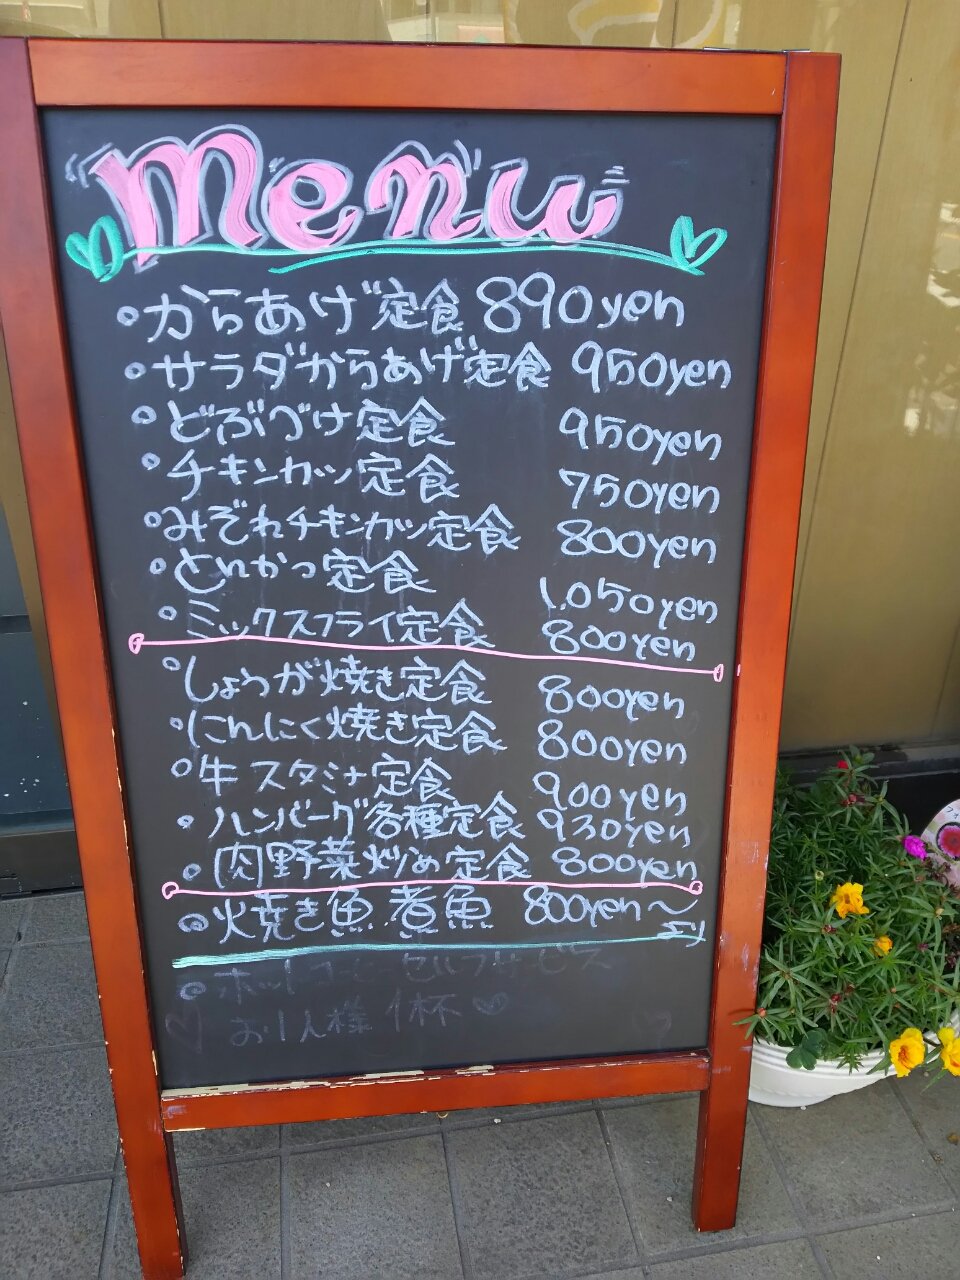 Menu
からあげ定食 890yen
サラダからあげ定食 950yen
どぶづけ定食 950yen
チキンカツ定食 750yen
みぞれチキンカツ定食 800yen
とんかつ定食 1.050yen
ミックスフライ定食 800yen
しょうが焼き定食 800yen
にんにく焼き定食 800yen
牛スタミナ定食 900yen
ハンバーグ各種定食 930yen
肉野菜炒め定食 800yen
焼き魚 煮魚 800yen〜
より
ホットコーヒーセルフサービス
お1人様 1杯